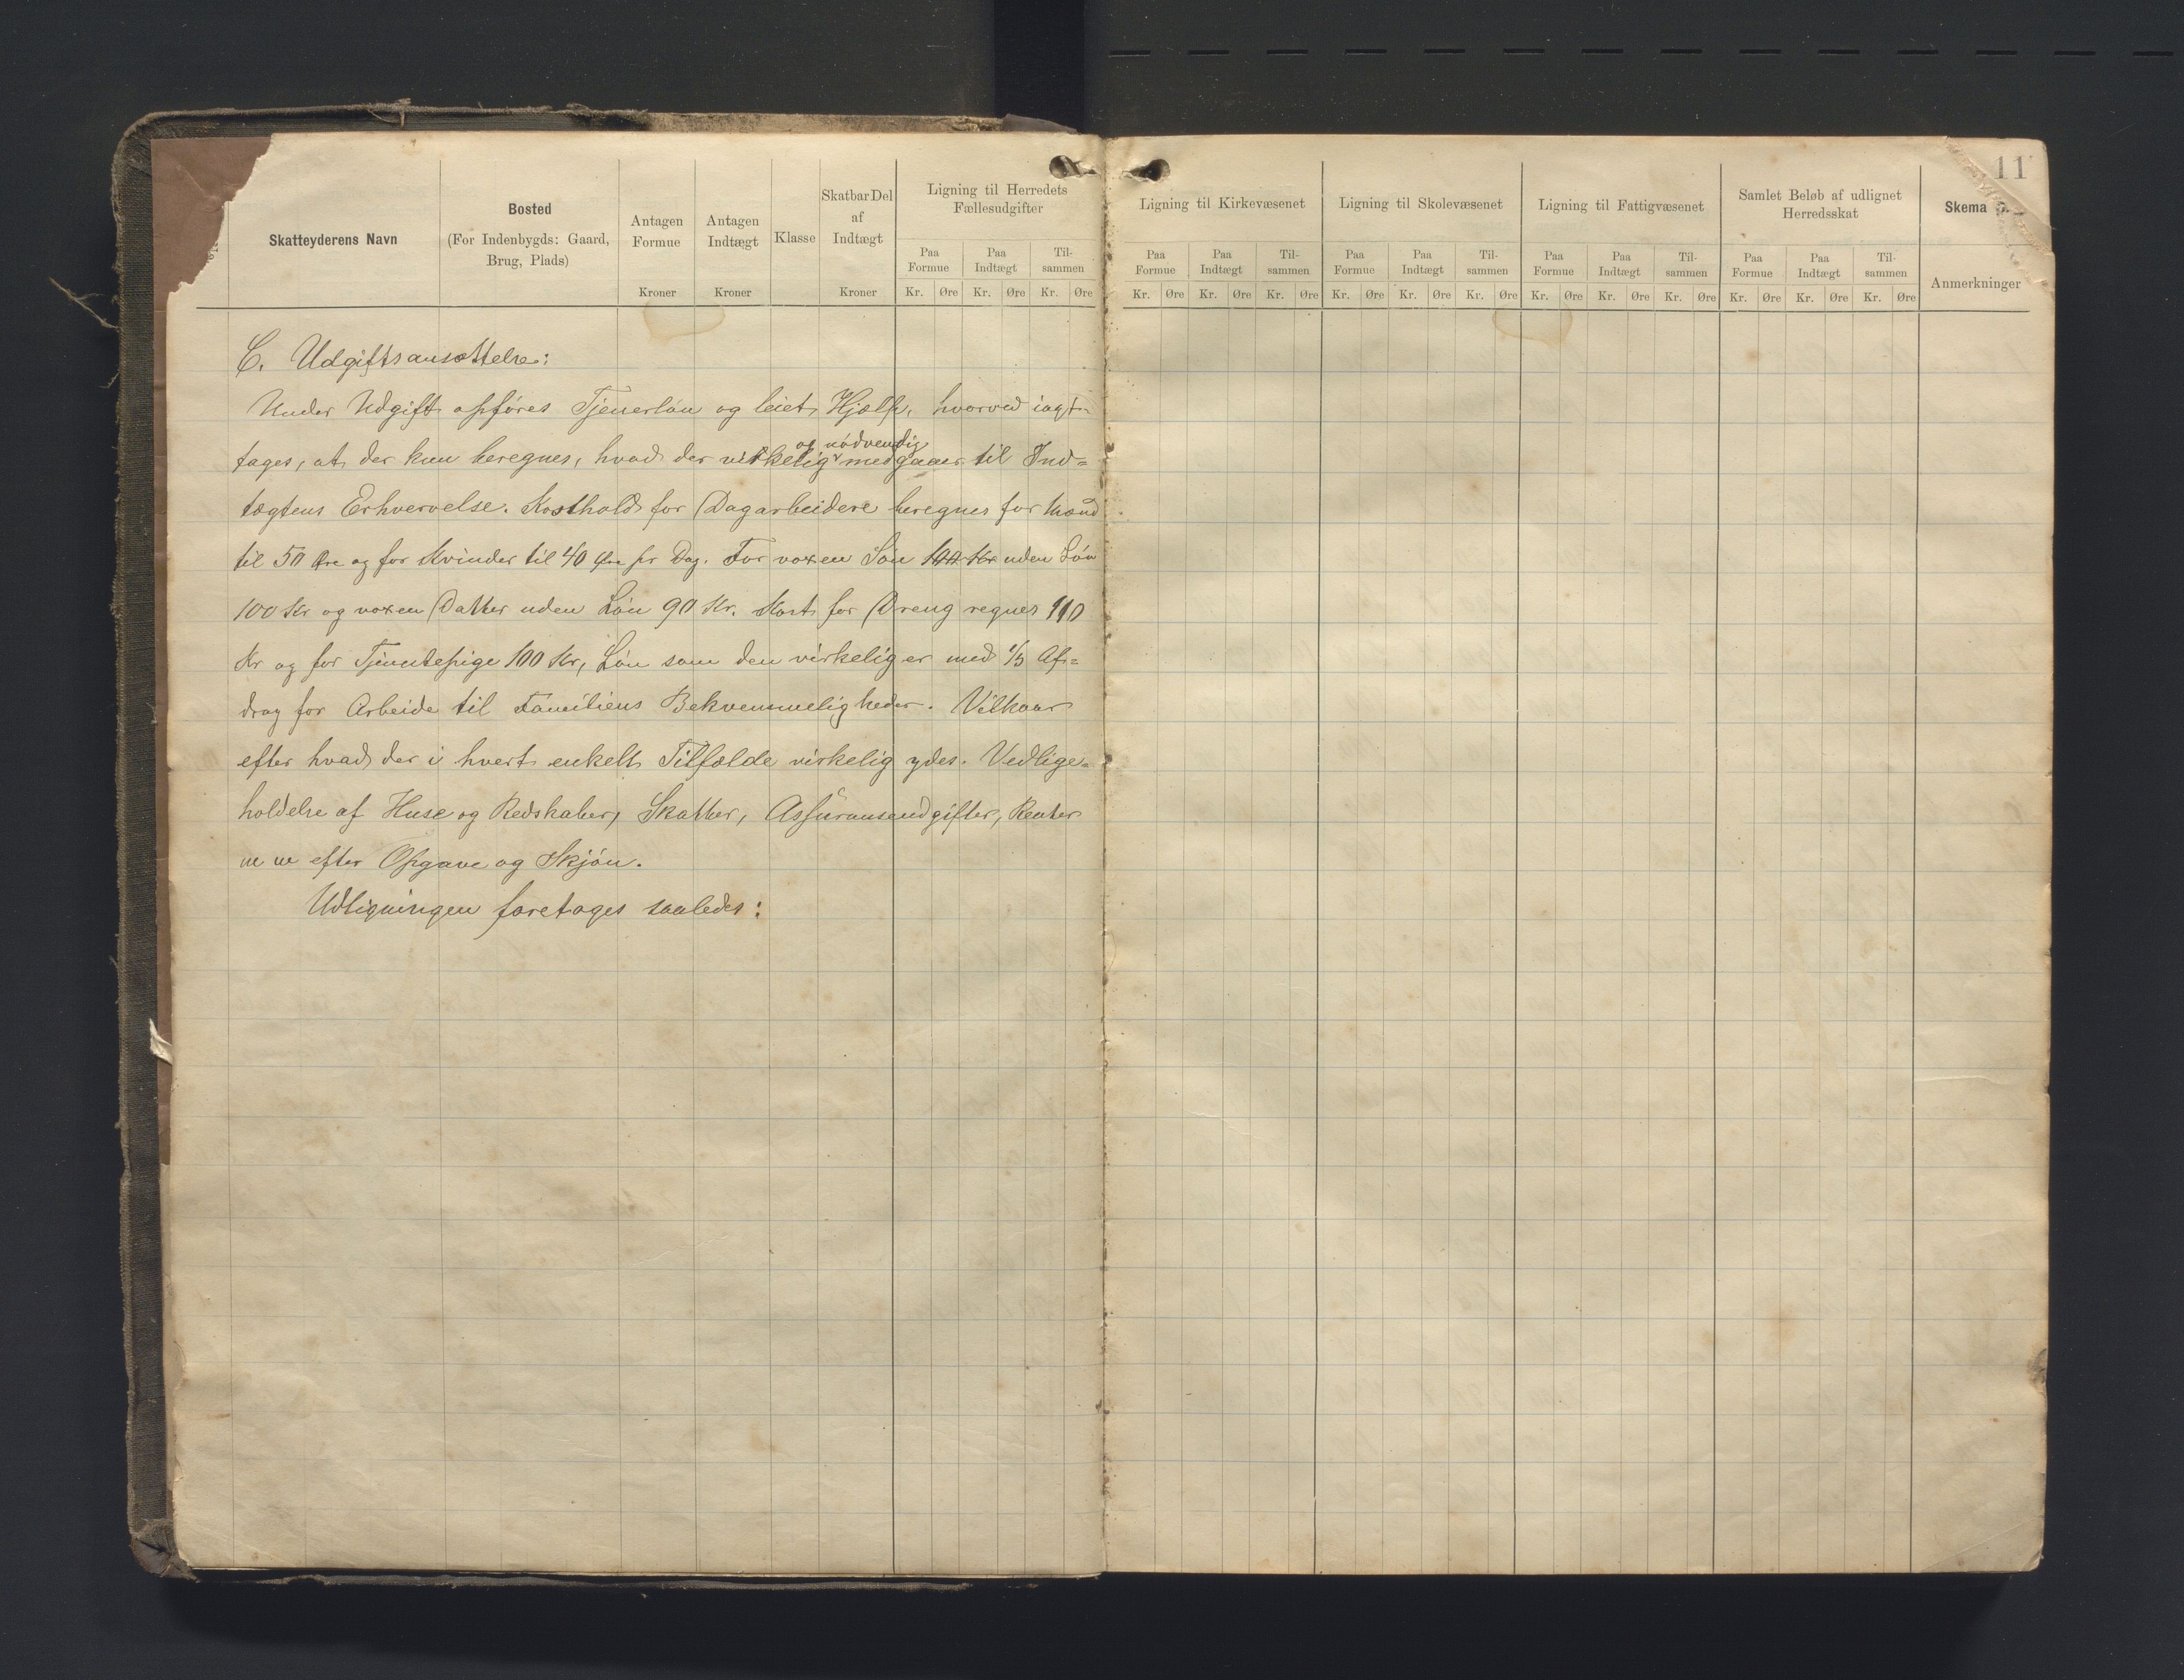 11
Skatteyderens Navn
Bosted
(For Indenbygds: Gaard,
Brug, Plads)
Antagen
Formue
Kroner
Antagen
Indtægt
Kroner
Klasse
Skatbar Del
af
Indtægt
Kroner
Ligning til Herredets
Fællesudgifter
Paa Formue Paa Indtægt Til-sammen
Kr. Øre Kr. Øre Kr. Øre
Ligning til Kirkevæsenet
Paa Formue Paa Indtægt Til-sammen
Kr. Øre Kr. Øre Kr. Øre
Ligning til Skolevæsenet
Paa Formue Paa Indtægt Til-sammen
Kr. Øre Kr. Øre Kr. Øre
Ligning til Fattigvæsenet
Paa Formue Paa Indtægt Til-sammen
Kr. Øre Kr. Øre Kr. Øre
Samlet Beløb af udlignet
Herredsskat
Paa Formue Paa Indtægt Til-sammen
Kr. Øre Kr. Øre Kr. Øre
Skema
Anmerkninger
C. Udgiftsansættelse:
Under Udgift opføres Tjenerløn og leiet Hjælp, hvorved iagt-
og nødvendig
tages, at der kun beregnes, hvad der virkelig medgaar til Ind=
tægtens Erhvervelse. Kosthold for Dagarbeidere beregnes for Mænd
til 50 Øre og for Kvinder til 40 Øre pr Dag. For voxen Søn 100 Kr uden Løn
100 Kr og voxen Datter uden Løn 90 Kr. Kost for Dreng regnes 110
Kr og for Tjenestepige 100 Kr, Løn som den virkelig er med 1/5 Af=
drag for Arbeide til Familiens Bekvemmeligheder. Vilkaar
efter hvad der i hvert enkelt Tilfælde virkelig ydes. Vedlige=
holdelse af Huse og Redskaber, Skatter, Assuranseudgifter, Renter
m m efter Opgave og Skjøn.
Udligningen foretages saaledes: